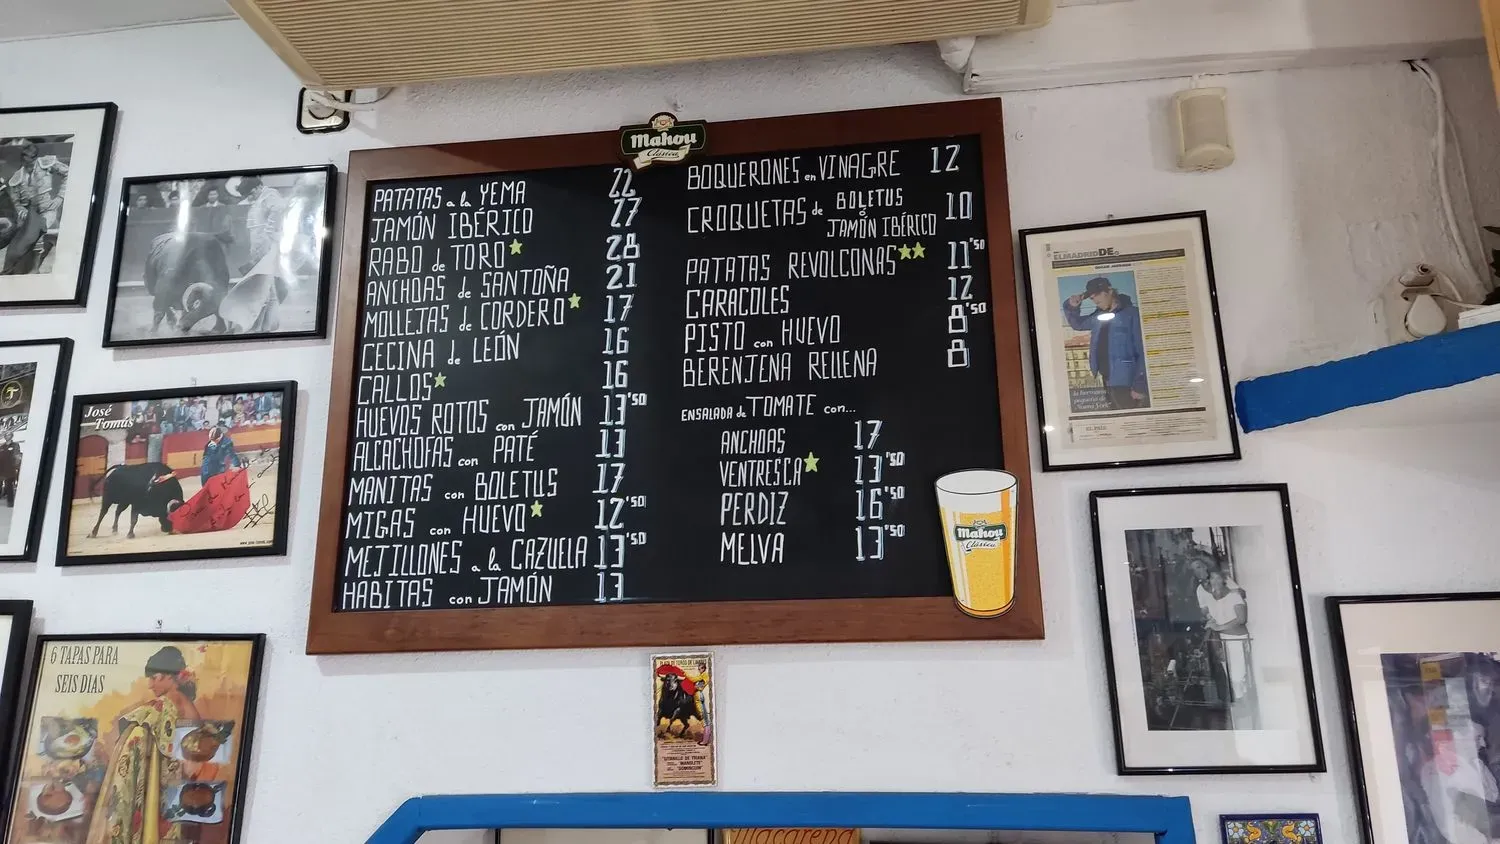 Mahou
Clásica
PATATAS a la YEMA 22
JAMÓN IBÉRICO 27
RABO de TORO 28
ANCHOAS de SANTOÑA 21
MOLLEJAS de CORDERO 17
CECINA de LEÓN 16
CALLOS 16
HUEVOS ROTOS con JAMÓN 13'50
ALCACHOFAS con PATÉ 13
MANITAS con BOLETUS 17
MIGAS con HUEVO 12'50
MEJILLONES a la CAZUELA 13'50
HABITAS con JAMÓN 13
BOQUERONES en VINAGRE 12
CROQUETAS de BOLETUS
o
JAMÓN IBÉRICO 10
PATATAS REVOLCONAS 11'50
CARACOLES 12
PISTO con HUEVO 8'50
BERENJENA RELLENA 8
ENSALADA de TOMATE con...
ANCHOAS 17
VENTRESCA 13'50
PERDIZ 16'50
MELVA 13'50
Mahou
Clásica
José
Tomás
6 TAPAS PARA
SEIS DIAS
ELMADRIDDE
EL PAÍS
PLAZA DE TOROS DE LINARES
"GITANILLO DE TRIANA"
"MANOLETE"
"DOMINGUIN"
Macarena